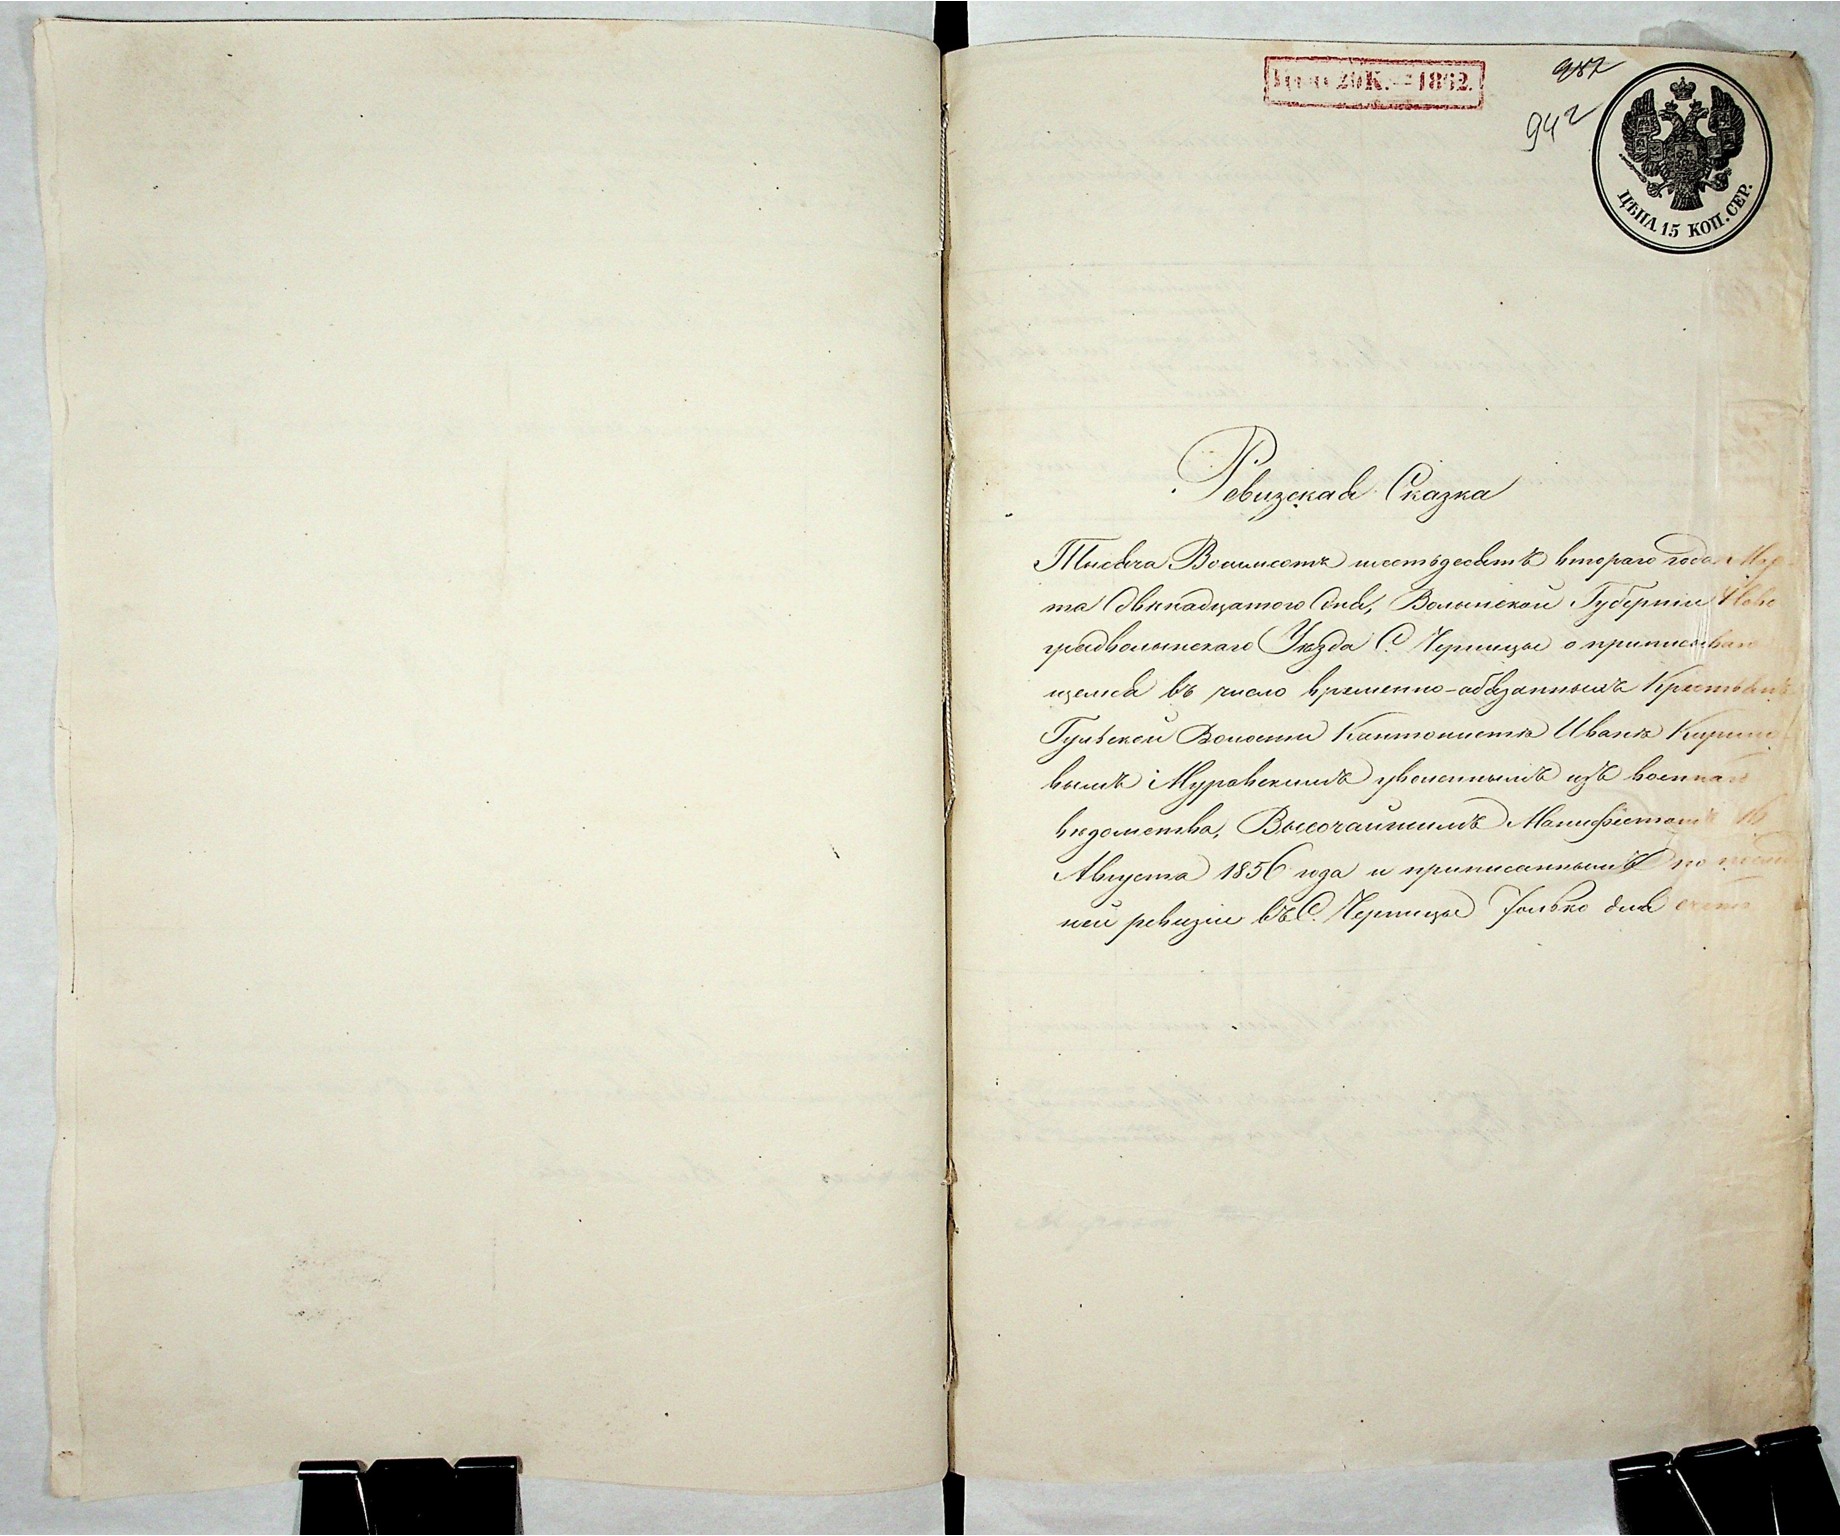 Цена 20 К. = 1862.
942
ЦѢНА 15 КОП. СЕР.
Ревизская Сказка
Тысяча Восимсотъ шестьдесятъ втораго года Мар
та двѣнадцатого дня, Волынской Губерніи Ново
градволынскаго Уѣзда С. Черницы о приписываю
щемся въ число временно-обязанныхъ Крестьянъ
Гульской Волости Кантонистѣ Иванѣ Кирило
вымъ Муравскимъ уволеннымъ изъ военнаго
вѣдомства, Высочайшимъ Манифестомъ
Августа 1856 года и приписаннымъ по
ней ревизіи въ С. Черницы только для счета